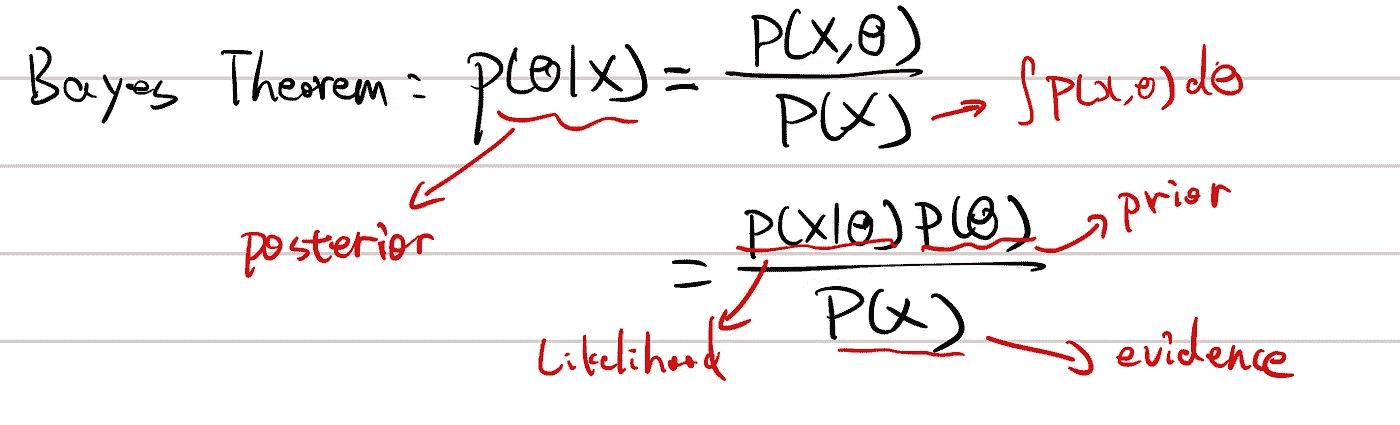 Bayes Theorem = p(θ|X) = P(X,θ) / P(X) → ∫P(x,θ)dθ
posterior
= P(X|θ) P(θ) / P(X)
prior
Likelihood
evidence